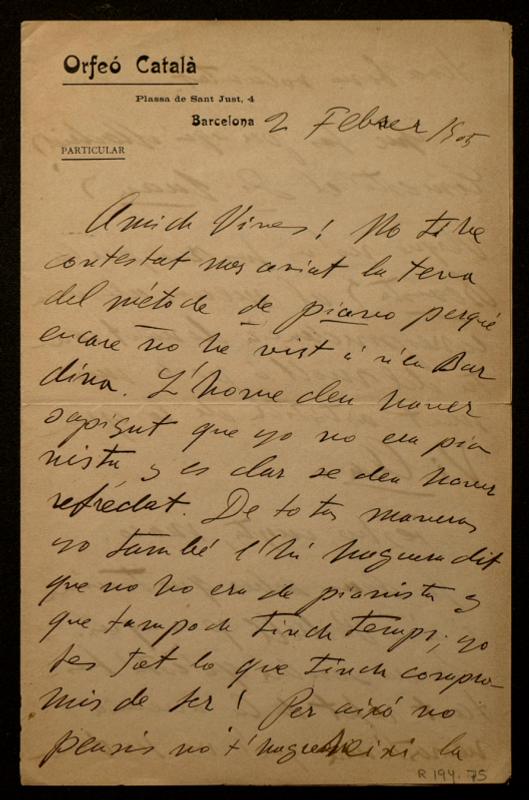 Orfeó Català
Plassa de Sant Just, 4
Barcelona 2 Febrer 1905
PARTICULAR
Amich Vives! No t'he
contestat mes aviat la teva
del método de piano perqué
encare no he vist á n'en Bar
dina. L'home deu haver
sapigut que yo no era pia
nista y es clar se deu haver
refredat. De totas maneras
yo també l'hi haguera dit
que no ho era de pianista y
que tampoch tinch temps; yo
fes tot lo que tinch compro-
mis de fer! Per aixó no
pensis no t'haguera la
R 194.75